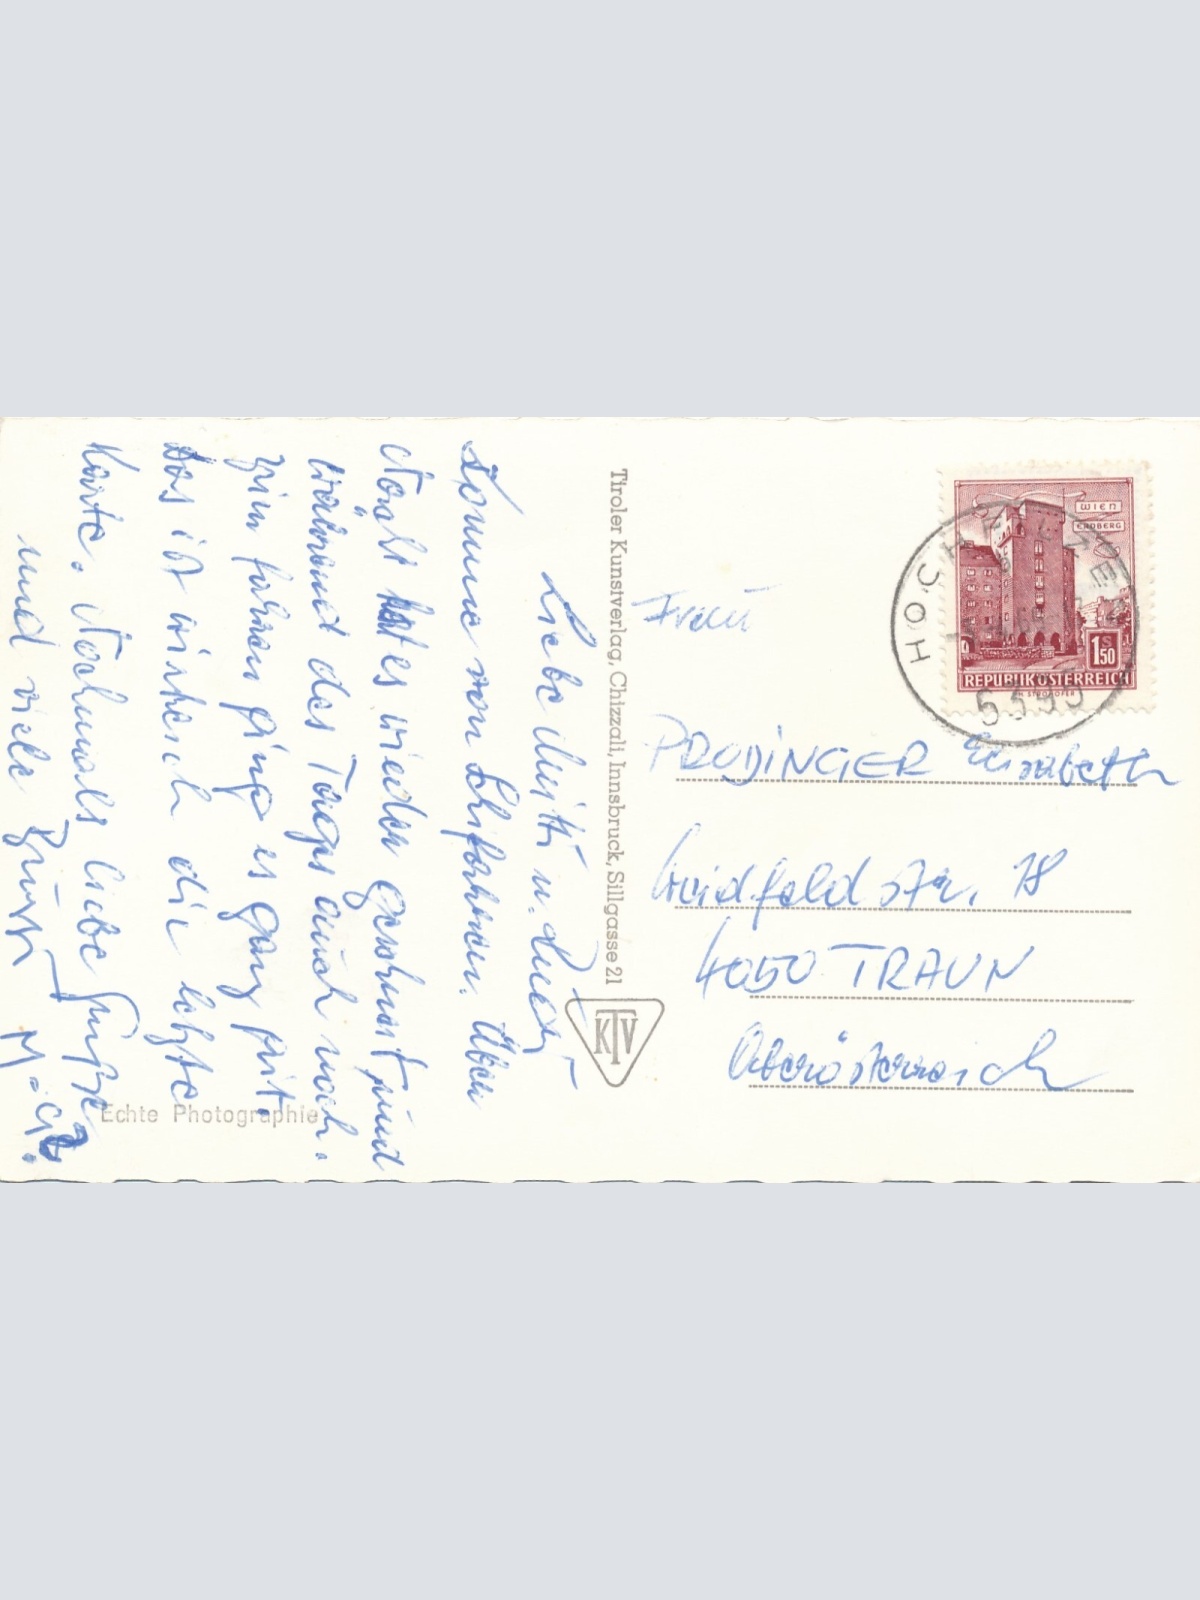 Liebe Mutti u.
Komme vom Schifahren. Über
Nacht hat es wieder geschneit und
während des Tages auch noch.
Zum fahren ging es ganz gut.
Das ist wirklich die letzte
Karte. Nochmals liebe Grüße
und viele
Tiroler Kunstverlag, Chizzali, Innsbruck, Sillgasse 21
KTV
Echte Photographie
WIEN
ERDBERG
1 S 50
REPUBLIK ÖSTERREICH
Frau
PRODINGER Elisabeth
Weidfeldstr. 18
4050 TRAUN
Oberösterreich